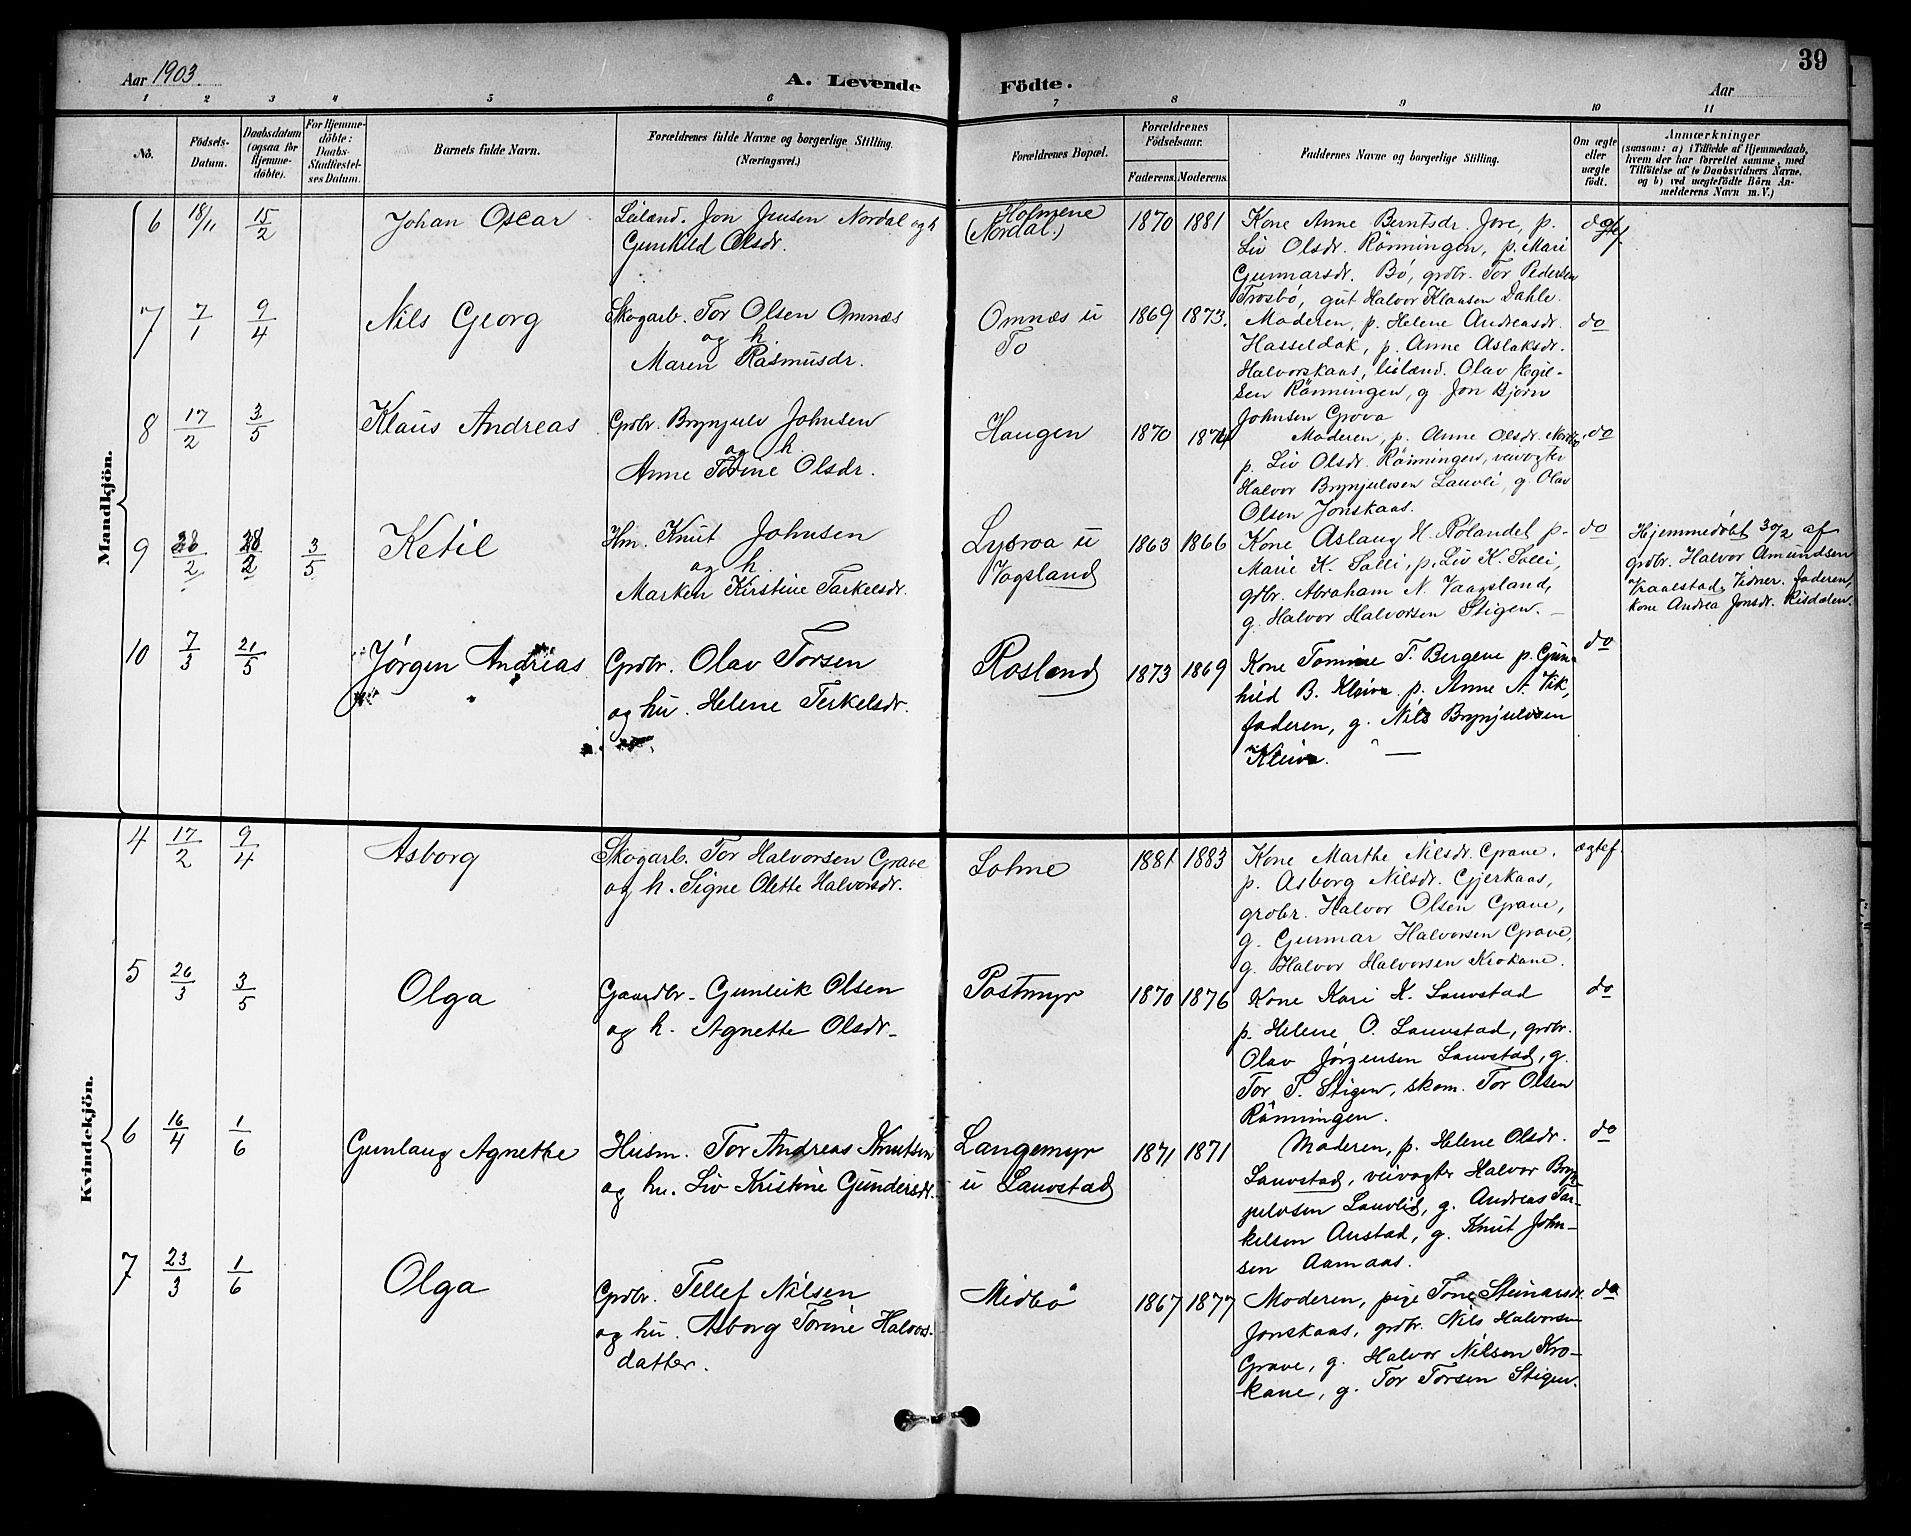 39
Aar 1903. A. Levende Födte. Aar
1 2 3 4 5 6 7 8 9 10 11
No. Födsels-Datum. Daabsdatum (ogsaa for Hjemme-döbte). For Hjemme-döbte: Daabs-Stadfæstel-ses Datum. Barnets fulde Navn. Forældrenes fulde Navne og borgerlige Stilling. (Næringsvei.) Forældrenes Bopæl. Forældrenes Födselsaar. Faderens. Moderens. Faddernes Navne og borgerlige Stilling. Om ægte eller uægte födt. Anmærkninger (saasom: a) i Tilfælde af Hjemmedaab, hvem der har forrettet samme, med Tilföielse af to Daabsvidners Navne, og b) ved uægtefödte Börn An-melderens Navn m. V.)
Mandkjön.
6 18/11 15/2 Johan Oscar Leilænd. Jon Jensen Nordal og h Gunhild Olsdr. Holmene (Nordal.) 1870 1881 Kone Anne Berntsdr. Jore, p.
Liv Olsdr. Rönningen, p. Mari
Gunnarsdr. Bö, grdbr. Tor Pedersen
Trosbö, gut Halvor Klausen Dahle.
7 7/1 9/4 Nils Georg Skogarb. Tor Olsen Omnæs og h. Maren Rasmusdr. Omnæs u To 1869 1873. Moderen, p. Helene Andreasdr. do
Hasseldok, p. Anne Aslaksdr.
Halvorskaas, leilænd. Olav Egil-
sen Rönningen, g. Jon Bjørn
Johnsen Grova
8 17/2 3/5 Klaus Andreas Grdbr. Brynjulv Johnsen og h. Anne Torine Olsdr. Haugen 1870 1874 Moderen, p. Anne Olsdr. do
p. Liv Olsdr. Rönningen, veivogter
Halvor Brynjulvsen Lauvli, g. Olav
Olsen Jonskaas.
9 28/2 3/5 Ketil Hm. Knut Johnsen og h. Marken Kirstine Tarkelsdr. Lysroa u Vogsland 1863 1866 Kone Aslaug H. Rölandet p. do
Marie K. Solli, p. Liv K. Solli,
grdbr. Abraham N. Vaagsland,
g. Halvor Halvorsen Stigen. —
Hjemmedöbt 30/2 af
grdbr. Halvor Amundsen
Vraalstad, Vidner. faderen,
kone Andrea Jonsdr. Risdalen.
10 7/3 21/5 Jørgen Andreas Grdbr. Olav Torsen og hu. Helene Terkelsdr. Rosland 1873 1869 Kone Tomine T. Bergene p. Gun- do
hild B. Kleiva. p. Anne A. Vik,
faderen, g. Nils Brynjulvsen
Kleiva. —
Kvindekjön.
4 17/2 9/4 Asborg Skogarb. Tor Halvorsen Grave og h. Signe Olette Halvorsdr. Lohne 1881 1883 Kone Marthe Nilsdr. Grave, ægtef.
p. Asborg Nilsdr. Gjerkaas,
grdbr. Halvor Olsen Grave,
g. Gunnar Halvorsen Grave,
g. Halvor Halvorsen Krokane.
5 26/3 3/5 Olga Gaardbr. Gunleik Olsen og h. Agnette Olsdr. Postmyr 1870 1876 Kone Kari K. Lauvstad do
p. Helene O. Lauvstad, grdbr.
Olav Jørgensen Lauvstad, g.
Tor P. Stigen, skom. Tor Olsen
Rönningen.
6 16/4 1/6 Gunlaug Agnethe Husm. Tor Andreas Knutsen og hu. Liv Kristine Gundersdr. Langemyr u Lauvstad 1871 1871 Moderen, p. Helene Olsdr. do
Lauvstad, veivogter Halvor Bryn-
julvsen Lauvlid, g. Andreas Tar-
kelsen Austad, g. Knut John-
sen Aamaas.
7 23/3 1/6 Olga Grdbr. Tellef Nilsen og hu. Asborg Torine Halvors-datter. Midbö 1867 1877 Moderen, pige Tone Steinarsdr. do
Jonskaas, grdbr. Nils Halvorsen
Grave, g. Halvor Nilsen Kro-
kane, g. Tor Torsen Stigen.